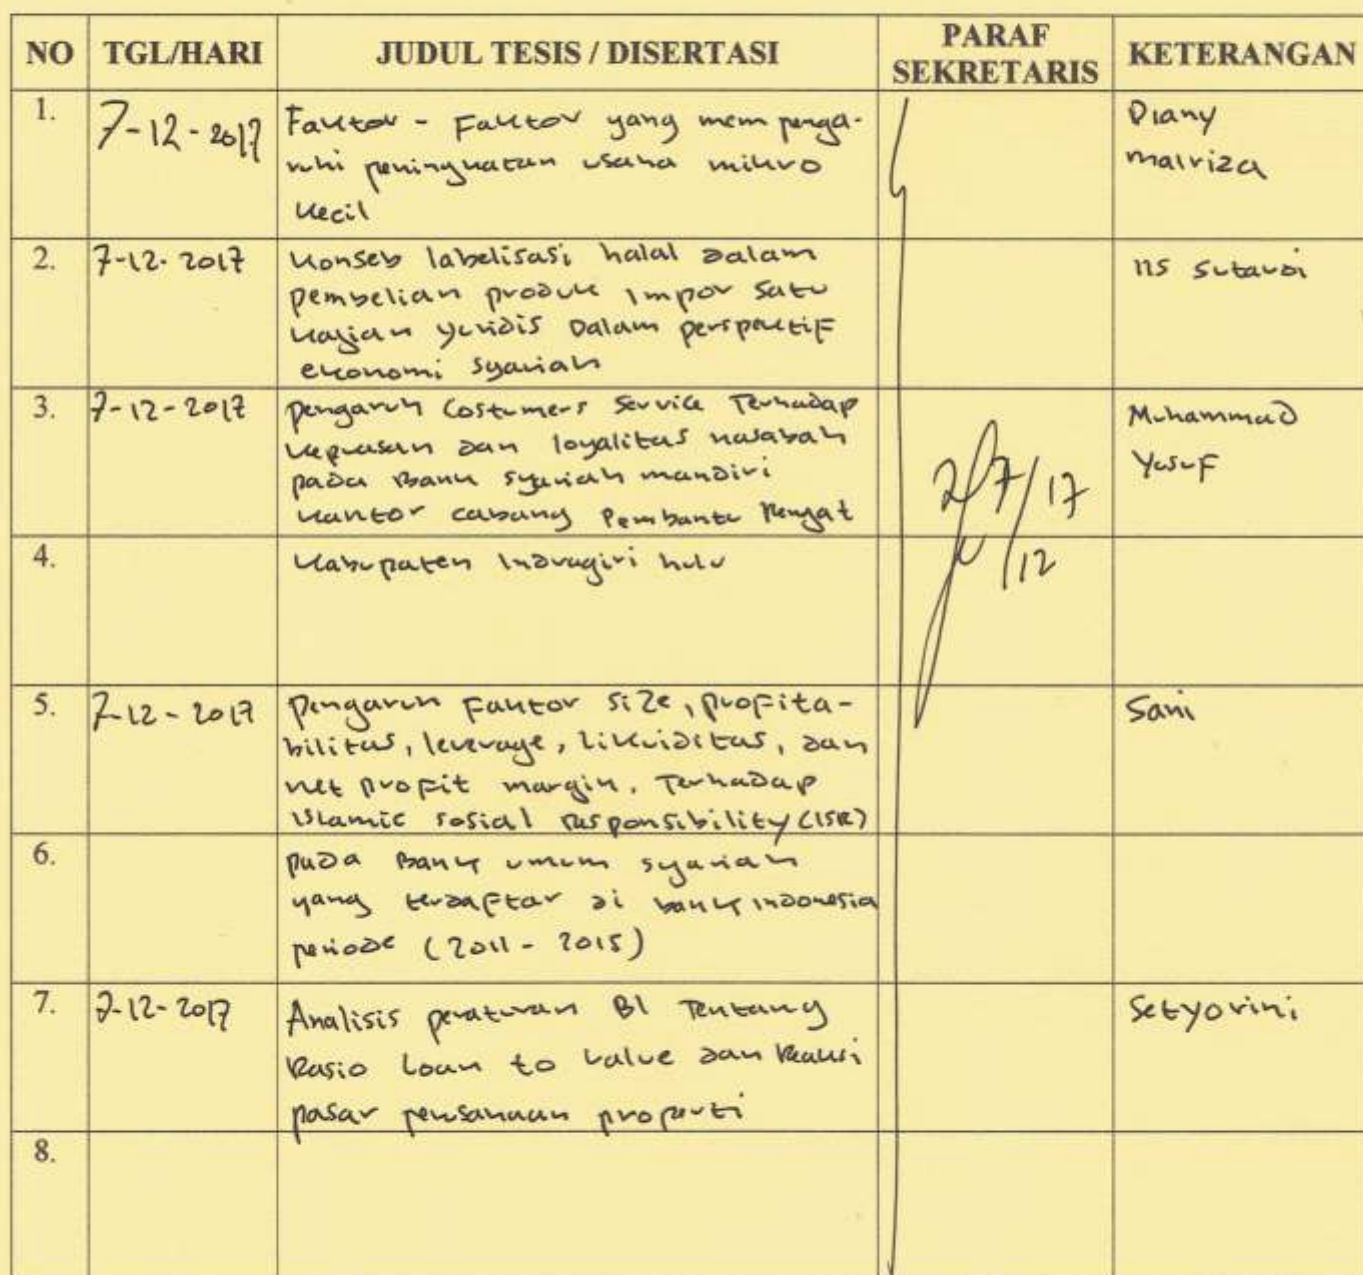 NO TGL/HARI JUDUL TESIS / DISERTASI PARAF SEKRETARIS KETERANGAN
1. 7-12-2017 Faktor - Faktor yang mempenga-
ruhi peningkatan usaha mikro
kecil
Diany
malriza
2. 7-12-2017 Konseb labelisasi halal dalam
pembelian produk impor satu
kajian yuridis Dalam perspektif
ekonomi syariah
IIS Sutardi
3. 7-12-2017 pengaruh Costumers Service Terhadap
kepuasan dan loyalitas nasabah
pada Bank syariah mandiri
kantor cabang Pembantu Rengat
Muhammad
Yusuf
27/17
12
4. Kabupaten Indragiri hulu
5. 7-12-2017 Pengaruh Faktor size, profita-
bilitas, leverage, likuiditas, dan
net profit margin, Terhadap
Islamic sosial Responsibility (ISR)
Sani
6. pada Bank umum syariah
yang terdaftar di bank indonesia
periode (2011 - 2015)
7. 7-12-2017 Analisis peraturan BI Tentang
Rasio Loan to value dan Reaksi
pasar properti
Setyorini
8.